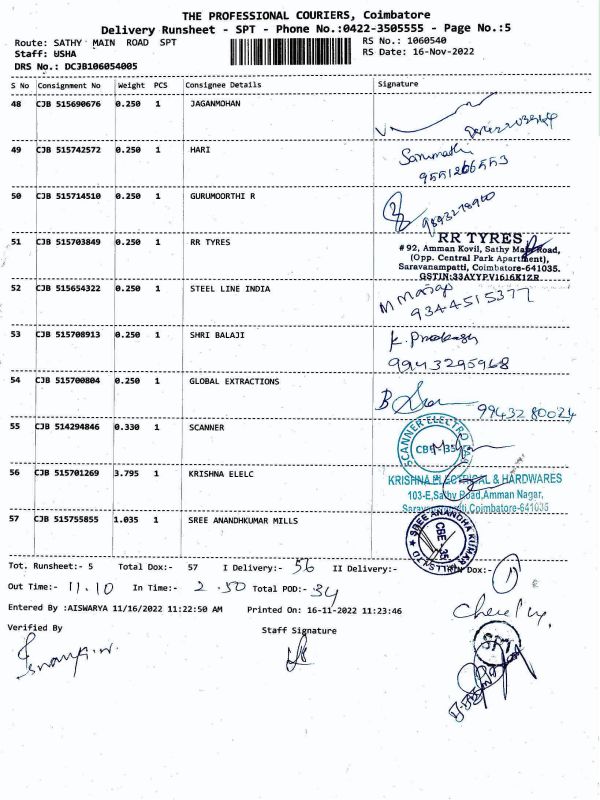 THE PROFESSIONAL COURIERS, Coimbatore
Delivery Runsheet - SPT - Phone No.:0422-3505555 - Page No.:5
Route: SATHY MAIN ROAD SPT RS No.: 1060540
Staff: USHA RS Date: 16-Nov-2022
DRS No.: DCJB106054005
S No Consignment No Weight PCS Consignee Details Signature
48 CJB 515690676 0.250 1 JAGANMOHAN
49 CJB 515742572 0.250 1 HARI
9551266553
50 CJB 515714510 0.250 1 GURUMOORTHI R
51 CJB 515703849 0.250 1 RR TYRES RR TYRES
# 92, Amman Kovil, Sathy Main Road,
(Opp. Central Park Apartment),
Saravanampatti, Coimbatore-641035.
GSTIN:33AYYPV1616K1ZR
52 CJB 515654322 0.250 1 STEEL LINE INDIA
9344515377
53 CJB 515708913 0.250 1 SHRI BALAJI
9943295968
54 CJB 515700804 0.250 1 GLOBAL EXTRACTIONS
9943280024
55 CJB 514294846 0.330 1 SCANNER SCANNER ELECTRO
CBE 35
56 CJB 515701269 3.795 1 KRISHNA ELELC KRISHNA ELECTRICAL & HARDWARES
103-E,Sathy Road,Amman Nagar,
Saravanampatti,Coimbatore-641035
57 CJB 515755855 1.035 1 SREE ANANDHKUMAR MILLS SREE ANANDHA KUMAR MILLS LTD
CBE. 35
Tot. Runsheet:- 5 Total Dox:- 57 I Delivery:- 56 II Delivery:- Dox:- 1
Out Time:- 11.10 In Time:- 2.50 Total POD:- 34
Entered By :AISWARYA 11/16/2022 11:22:50 AM Printed On: 16-11-2022 11:23:46
Verified By Staff Signature
SPT